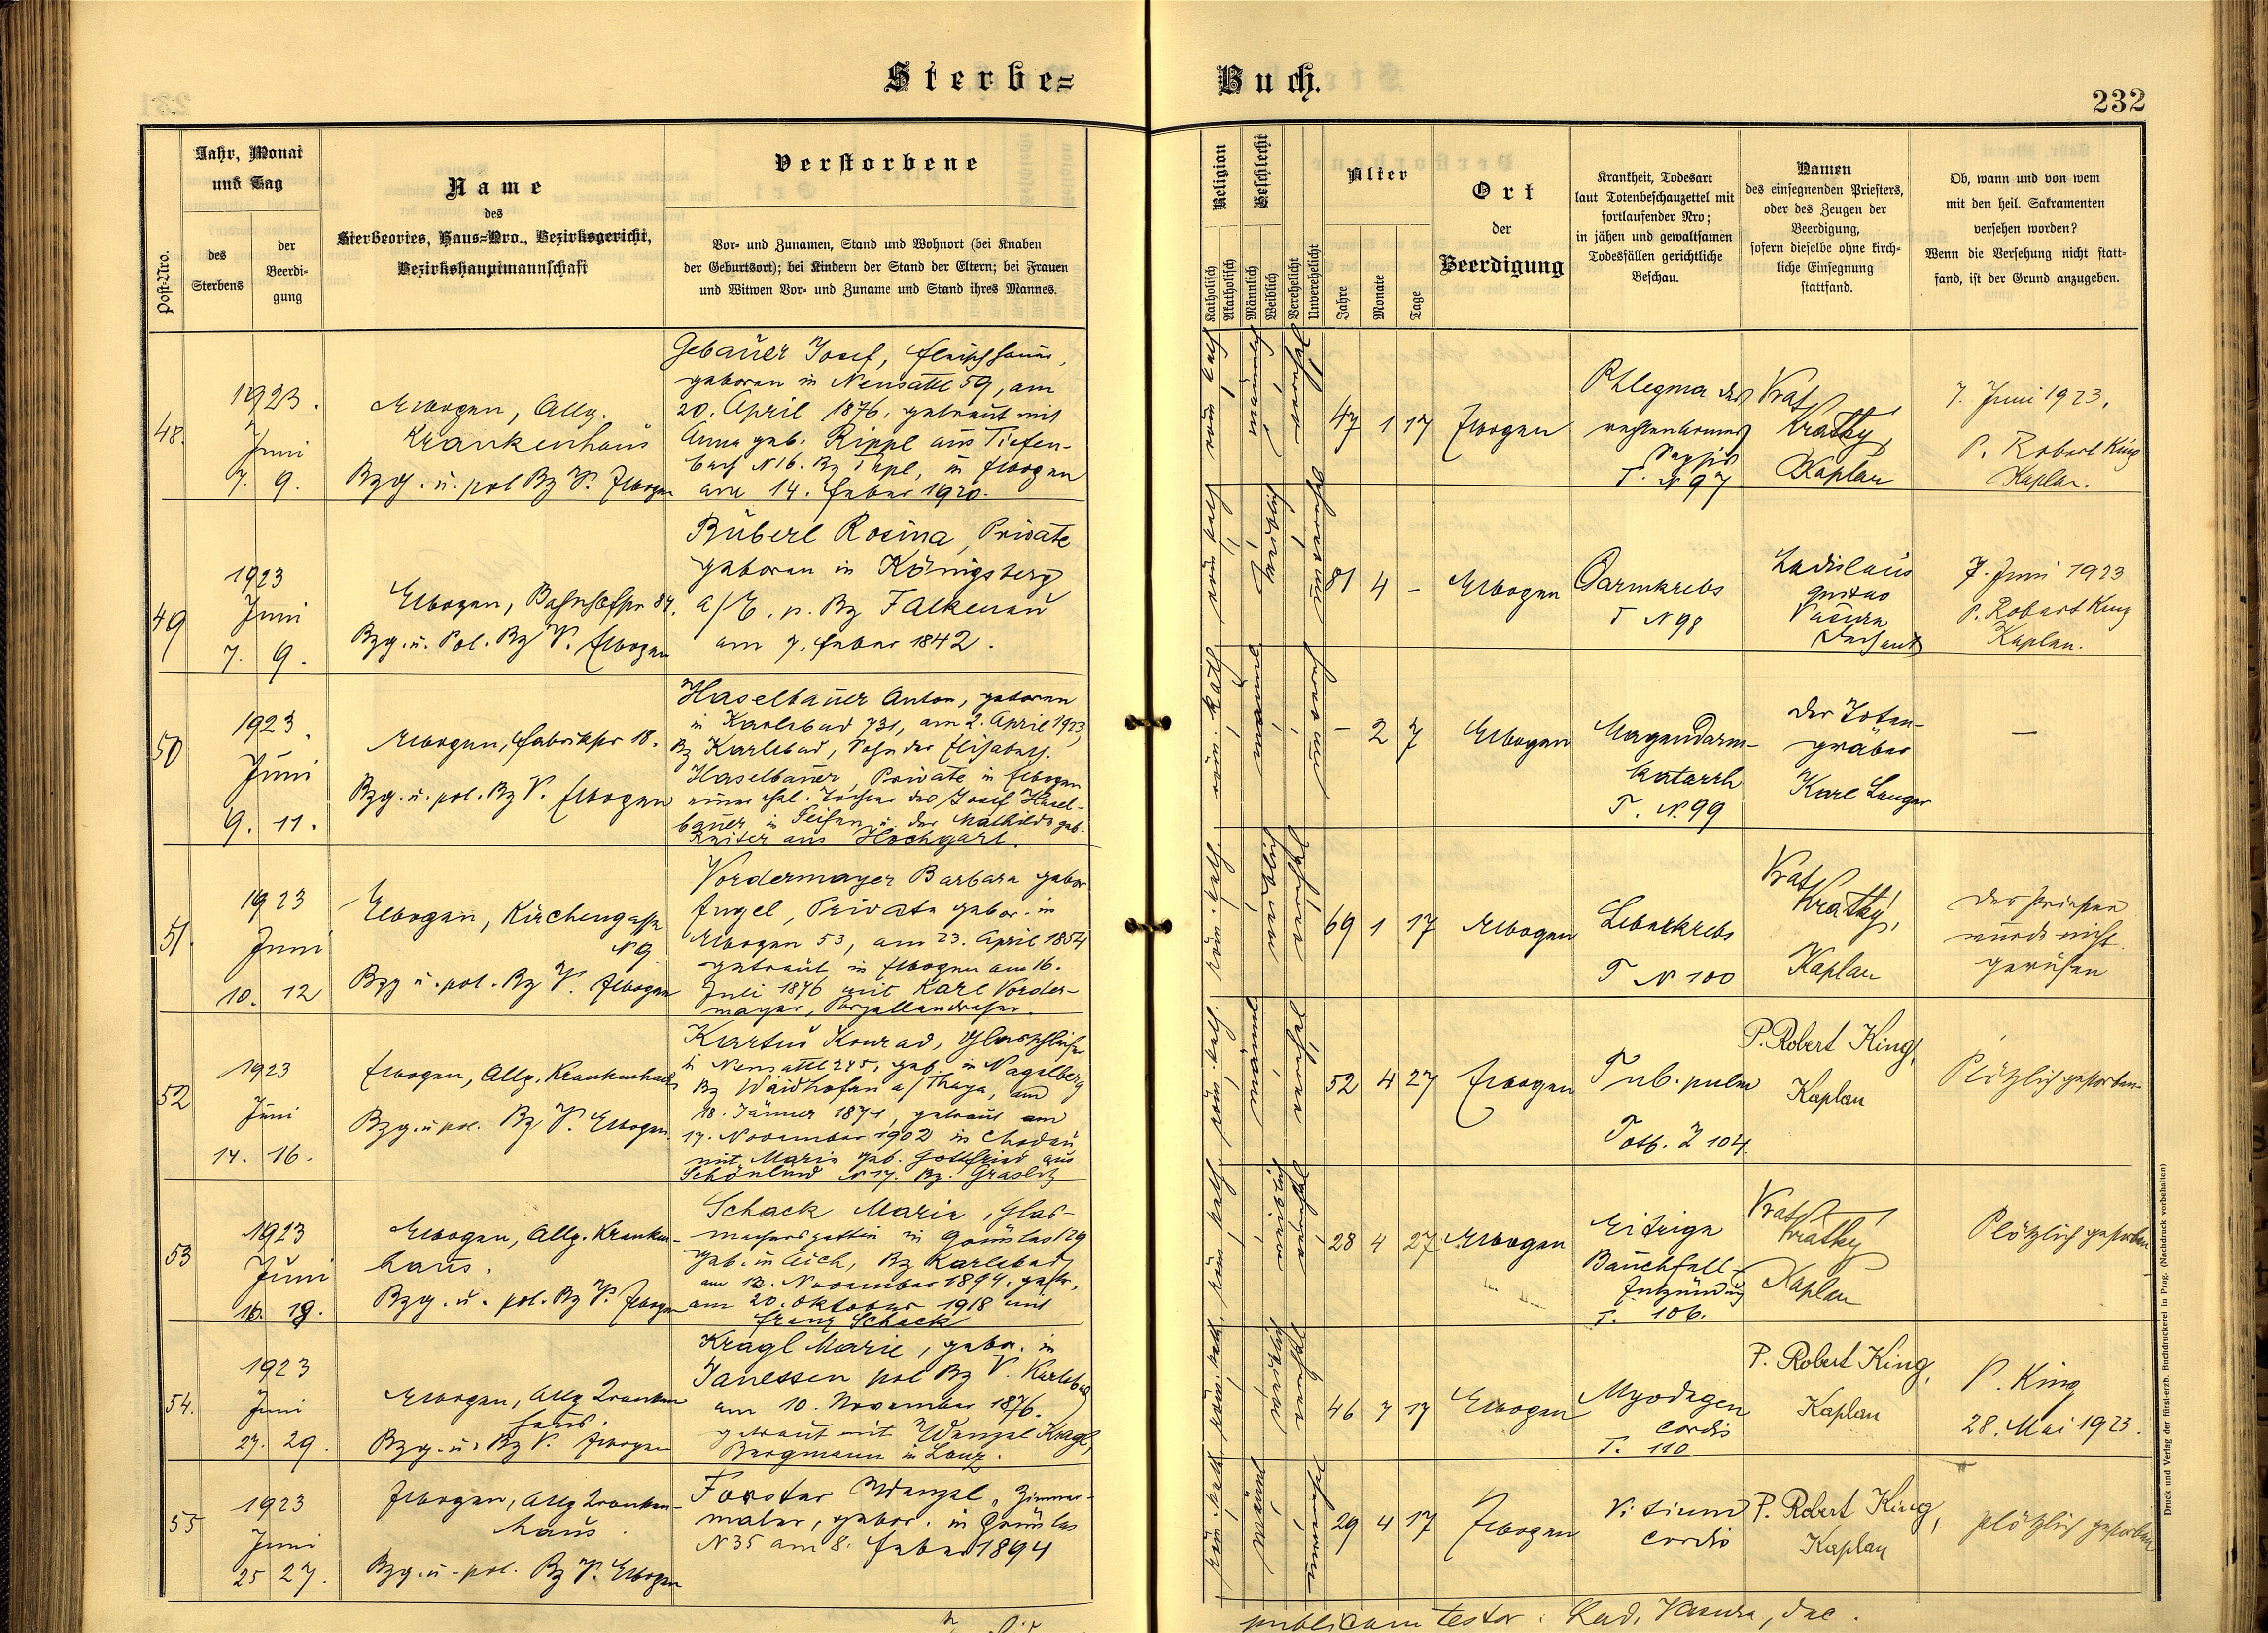 Sterbe=
Buch.
232
Post-Nro.
Jahr, Monat
und Tag
des
Sterbens
der
Beerdi-
gung
Name
des
Sterbeortes, Haus=Nro., Bezirksgericht,
Bezirkshauptmannschaft
Verstorbene
Vor- und Zunamen, Stand und Wohnort (bei Knaben
der Geburtsort); bei Kindern der Stand der Eltern; bei Frauen
und Witwen Vor- und Zuname und Stand ihres Mannes.
Religion
Katholisch
Akatholisch
Geschlecht
Männlich
Weiblich
Verehelicht
Unverehelicht
Alter
Jahre
Monate
Tage
Ort
der
Beerdigung
Krankheit, Todesart
laut Totenbeschauzettel mit
fortlaufender Nro;
in jähen und gewaltsamen
Todesfällen gerichtliche
Beschau.
Namen
des einsegnenden Priesters,
oder des Zeugen der
Beerdigung,
sofern dieselbe ohne kirch-
liche Einsegnung
stattfand.
Ob, wann und von wem
mit den heil. Sakramenten
versehen worden?
Wenn die Versehung nicht statt-
fand, ist der Grund anzugeben.
48.
1923.
Juni
7. 9.
Elbogen, Allg.
Krankenhaus
Bzg. u. pol Bz V. Elbogen
Gebauer Josef, Fleischhauer,
geboren in Neusattl 59, am
20. April 1876, getraut mit
Anna geb. Rippl aus Tiefen-
bach N 16. Bz Tepl, in Elbogen
am 14. Feber 1920.
röm. kath
männl
47 1 17
Elbogen
Phlegma des
rechten Armes
Sepsis
T. N 97
Krátký,
Kaplan
7. Juni 1923,
P. Robert King
Kaplan.
49
1923
Juni
7. 9.
Elbogen, Bahnhofstr 84.
Bzg. u. Pol. Bz V. Elbogen
Büberl Rosina, Private
geboren in Königsberg
a/E. p. Bz Falkenau
am 7. Feber 1842.
röm kath
81 4 -
Elbogen
Darmkrebs
T N 98
Ladislaus
Gustav
Vasura
Dechant
7. Juni 1923
P. Robert King
Kaplan.
50
1923.
Juni
9. 11.
Elbogen, Fabrikstr 18.
Bzg. u. pol. Bz V. Elbogen
Haselbauer Anton, geboren
in Karlsbad 731, am 2. April 1923,
Bz Karlsbad, Sohn der Elisabeth
Haselbauer, Private in Elbogen
einer ehel. Tochter des Josef Hasel-
bauer in Seifen u. der Mathilde geb.
Reiter aus Hochgart.
röm. kath
- 2 7
Elbogen
Magendarm-
katarrh
T. N. 99
der Toten-
gräber
Karl Langer
—
51.
1923
Juni
10. 12
Elbogen, Kirchengasse
N 9
Bzg u. pol. Bz V. Elbogen
Vordermayer Barbara gebor.
Engel, Private gebor. in
Elbogen 53, am 23. April 1854
getraut in Elbogen am 16.
Juli 1876 mit Karl Vorder-
mayer, Porzellandreher.
röm. kath.
69 1 17
Elbogen
Leberkrebs
T N 100
Krátký,
Kaplan
Der Priester
wurde nicht
gerufen
52
1923
Juni
14. 16.
Elbogen, Allg. Krankenhaus
Bzg. u pol. Bz V. Elbogen.
Kartus Konrad, Glasschleifer
in Neusattl 245, geb. in Nagelberg
Bz Waidhofen a/Thaya, am
18. Jänner 1871, getraut am
17. November 1902 in Chodau
mit Marie geb. Gottfried aus
Schönlind N 17. Bz. Graslitz
röm. kath
männl
52 4 27
Elbogen
Tub. pulm
Totb. Z 104.
P. Robert King,
Kaplan
Plötzlich gestorben
53
1923
Juni
16. 18.
Elbogen, Allg. Kranken-
haus.
Bzg. u. pol. Bz V. Elbogen
Schack Marie, Glas-
machersgattin in Grünlas 129
geb. in Aich, Bz Karlsbad
am 12. November 1894, getr.
am 20. Oktober 1918 mit
Franz Schack
röm kath
28 4 27
Elbogen
Eitrige
Bauchfell-
entzündung
T. 106.
Krátký
Kaplan
Plötzlich gestorben
54.
1923
Juni
27. 29.
Elbogen, Allg Kranken
haus.
Bzg. u. Bz V. Elbogen
Kragl Marie, gebor. in
Janessen pol Bz V. Karlsbad
am 10. November 1876.
getraut mit Wenzel Kragl,
Bergmann in Lanz.
röm. kath
46 7 17
Elbogen
Myodegen
cordis
T. 110
P. Robert King,
Kaplan
P. King
28. Mai 1923.
55
1923
Juni
25 27.
Elbogen, Allg Kranken-
haus.
Bzg. u. pol. Bz V. Elbogen
Forster Wenzel, Zimmer-
maler, gebor. in Grünlas
N 35 am 8. Feber 1894
röm. kath
29 4 17
Elbogen
Vitium
cordis
P. Robert King,
Kaplan
plötzlich gestorben
publicam testor: Lad. Vasura, dec.
Druck und Verlag der fürst-erzb. Buchdruckerei in Prag. (Nachdruck vorbehalten)